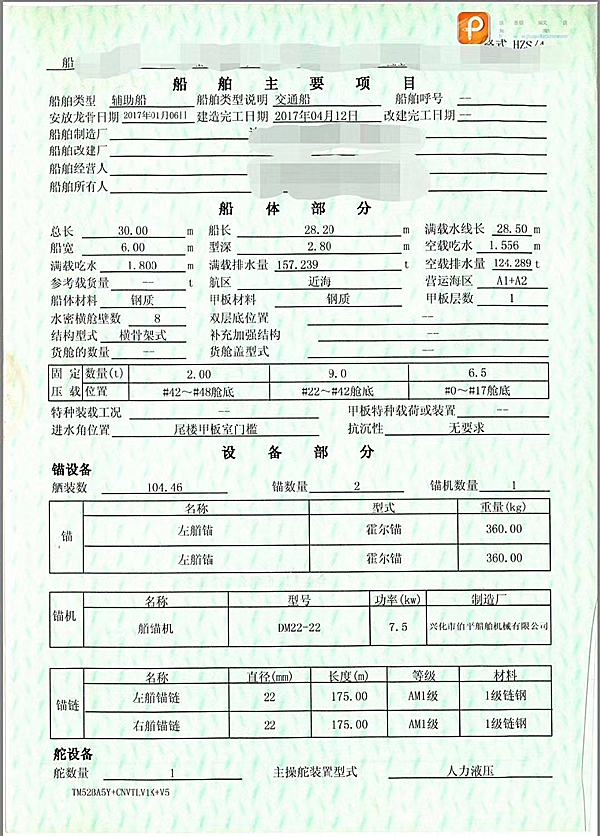 格式 HZS/4
船
船 舶 主 要 项 目
船舶类型 辅助船 船舶类型说明 交通船 船舶呼号 --
安放龙骨日期 2017年01月06日 建造完工日期 2017年04月12日 改建完工日期 --
船舶制造厂
船舶改建厂
船舶经营人
船舶所有人
船 体 部 分
总长 30.00 m 船长 28.20 m 满载水线长 28.50 m
船宽 6.00 m 型深 2.80 m 空载吃水 1.556 m
满载吃水 1.800 m 满载排水量 157.239 t 空载排水量 124.289 t
参考载货量 -- t 航区 近海 营运海区 A1+A2
船体材料 钢质 甲板材料 钢质 甲板层数 1
水密横舱壁数 8 双层底位置 --
结构型式 横骨架式 补充加强结构 --
货舱的数量 -- 货舱盖型式 --
固定 数量(t) 2.00 9.0 6.5
压载 位置 #42～#48舱底 #22～#42舱底 #0～#17舱底
特种装载工况 -- 甲板特种载荷或装置 --
进水角位置 尾楼甲板室门槛 抗沉性 无要求
设 备 部 分
锚设备
舾装数 104.46 锚数量 2 锚机数量 1
锚 名称 型式 重量(kg)
左艏锚 霍尔锚 360.00
左艏锚 霍尔锚 360.00
锚机 名称 型号 功率(kw) 制造厂
艏锚机 DM22-22 7.5 兴化市伯平船舶机械有限公司
锚链 名称 直径(mm) 长度(m) 等级 材料
左艏锚链 22 175.00 AM1级 1级链钢
右艏锚链 22 175.00 AM1级 1级链钢
舵设备
舵数量 1 主操舵装置型式 人力液压
TM52BA5Y+CNVTLV1K+V5